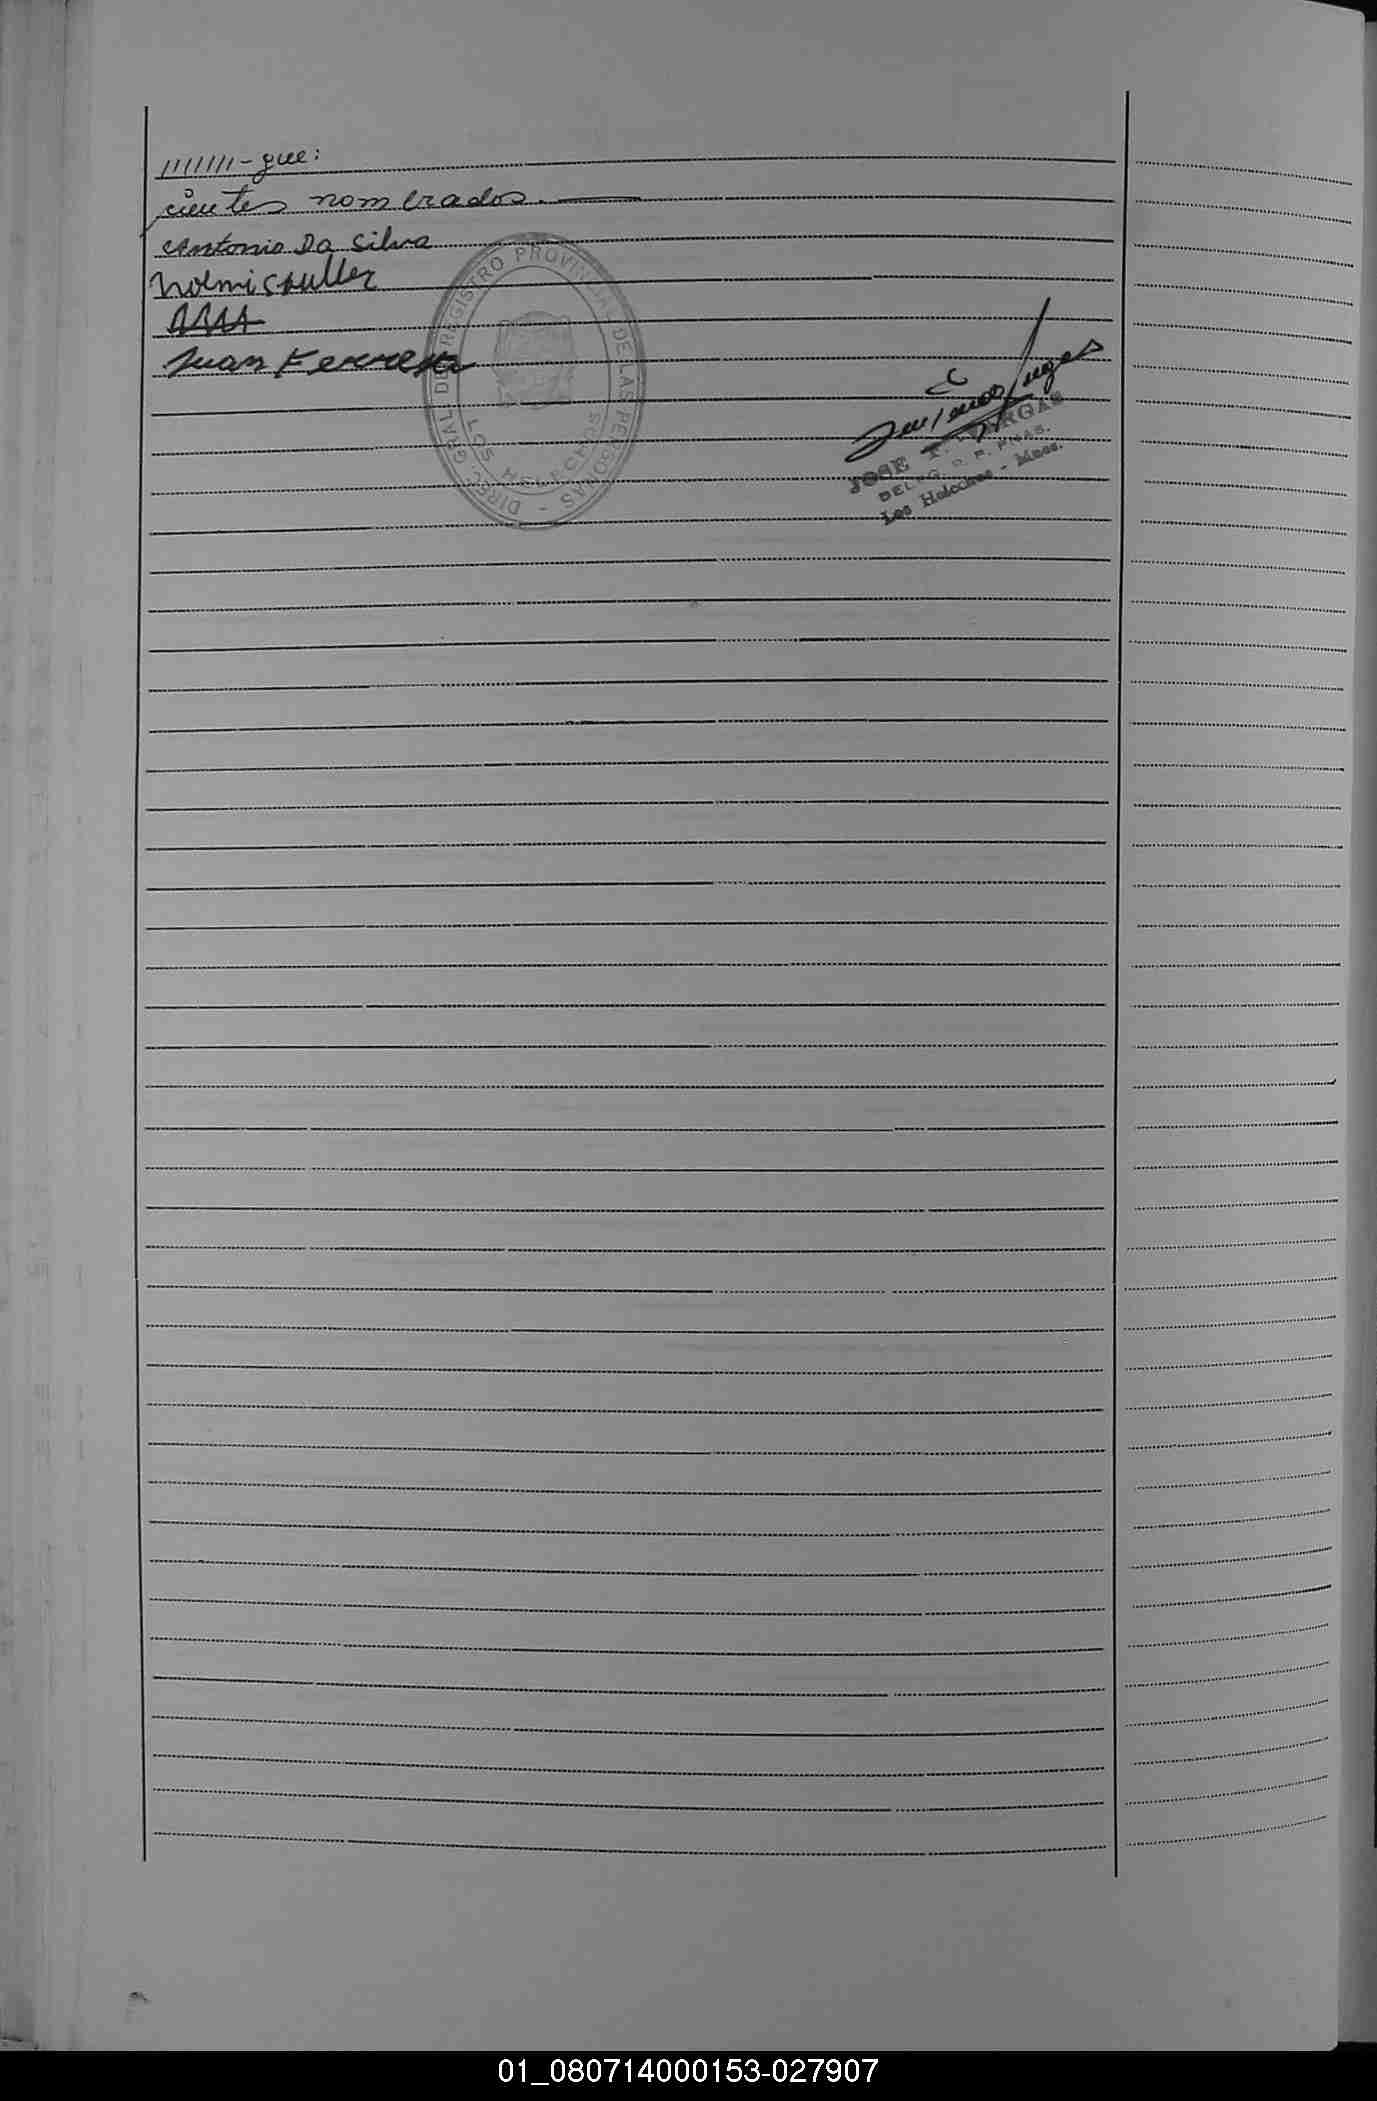 ///////-gue:
cientes nombrados.
Antonio Da Silva
Noemi
Juan Ferreira
DIREC. GRAL. DEL REGISTRO PROVINCIAL DE LAS PERSONAS -
LOS HELECHOS
JOSE F. VARGAS
DELEG. R. P. PNAS.
Los Helechos - Mnes.
01_080714000153-027907